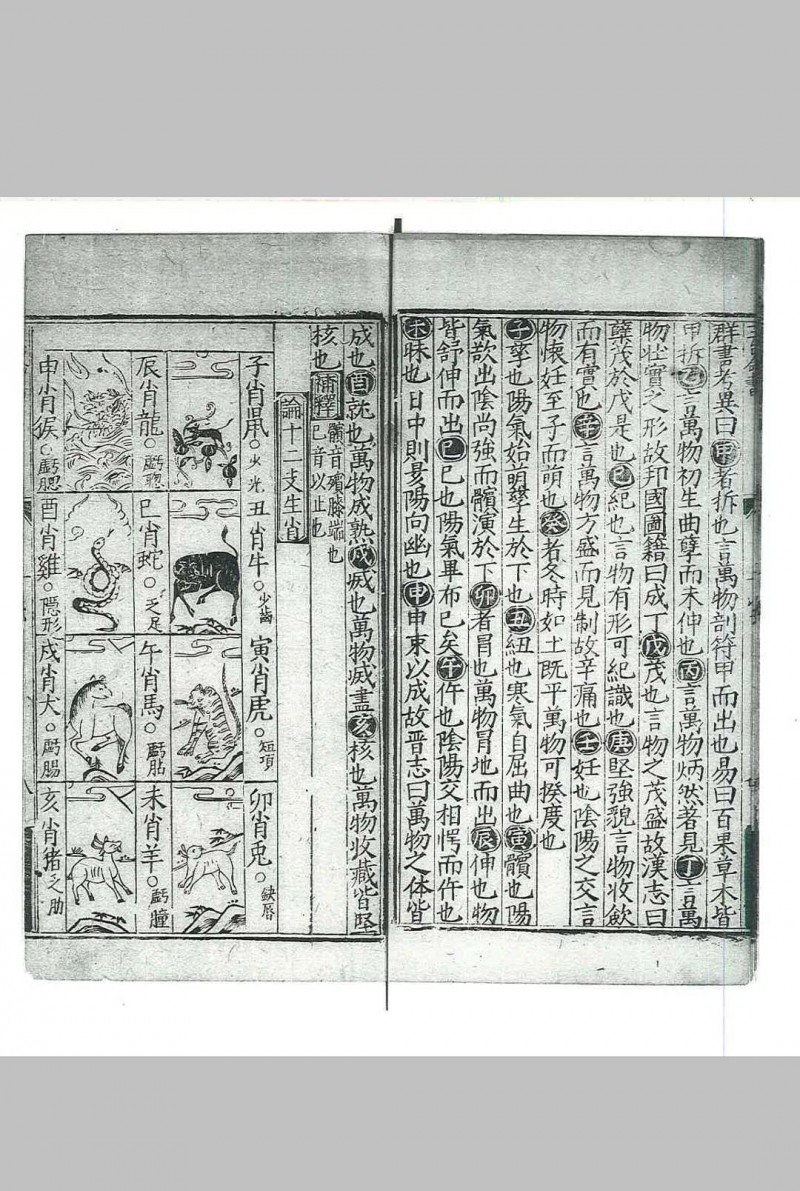 群書考異曰甲者拆也言萬物剖符甲而出也易曰百果草木皆
甲拆乙言萬物初生曲孽而未伸也丙言萬物炳然著見丁言萬
物壮實之形故邦國圖籍曰成丁戊茂也言物之茂盛故漢志曰
孽茂於戊是也己紀也言物有形可紀識也庚堅強貌言物收歛
而有實也辛言萬物方盛而見制故辛痛也壬妊也陰陽之交言
物懷妊至子而萌也癸者冬時如土既平萬物可揆度也
子孳也陽氣始萌孽生於下也丑紐也寒氣自屈曲也寅髕也陽
氣欲出陰尚強而髕演於下卯者冒也萬物冐地而出辰伸也物
皆舒伸而出巳已也陽氣畢布已矣午仵也陰陽交相愕而仵也
未昧也日中則昃陽向幽也申申束以成故晋志曰萬物之体皆
成也酉就也萬物成熟戌烕也萬物烕盡亥核也萬物收藏皆堅
核也補釋髕音殯膝端也
巳音以止也
論十二支生肖
子肖鼠。少光
丑肖牛。少齒
寅肖虎。短項
卯肖兎。缺唇
辰肖龍。虧聰
巳肖蛇。乏足
午肖馬。虧胋
未肖羊。虧瞳
申肖猴。虧腮
酉肖雞。隠形
戌肖犬。虧腸
亥肖猪乏肋